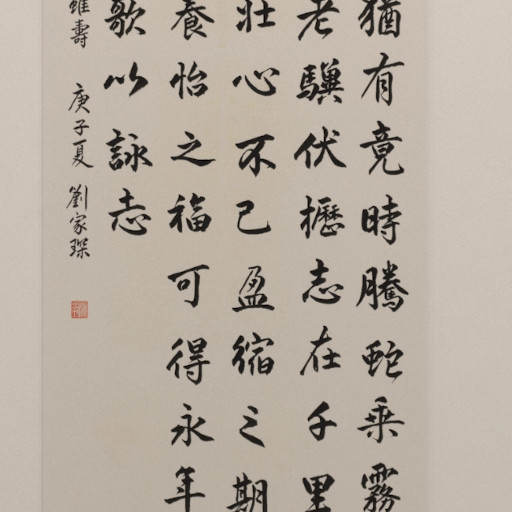 猶有竟時騰蛇乘霧
老驥伏櫪志在千里
壯心不已盈縮之期
養怡之福可得永年
歌以詠志
雖壽 庚子夏 劉家琛